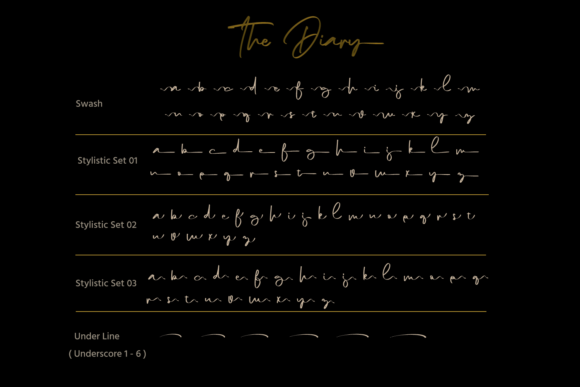 The Diary
Swash
a b c d e f g h i j k l m
n o p q r s t u v w x y z
Stylistic Set 01
a b c d e f g h i j k l m
n o p q r s t u v w x y z
Stylistic Set 02
a b c d e f g h i j k l m n o p q r s t
u v w x y z
Stylistic Set 03
a b c d e f g h i j k l m n o p q
r s t u v w x y z
Under Line
( Underscore 1 - 6 )